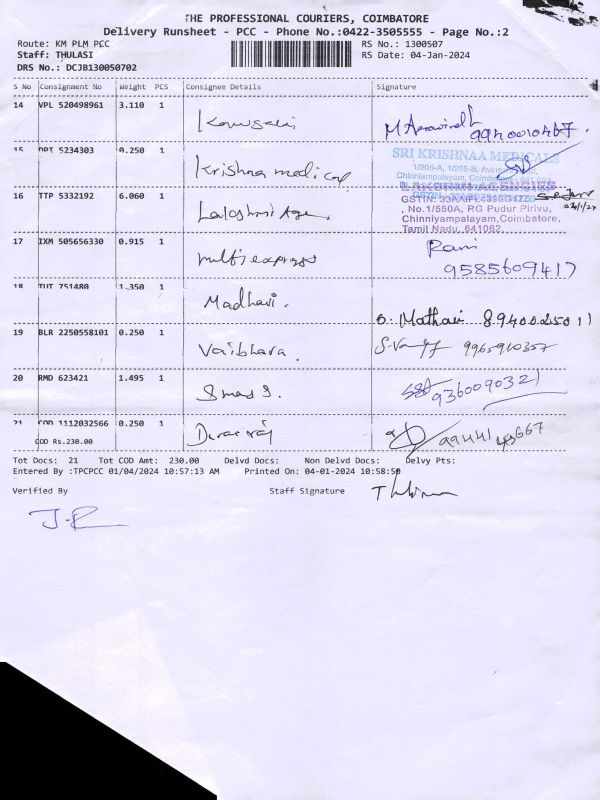 THE PROFESSIONAL COURIERS, COIMBATORE
Delivery Runsheet - PCC - Phone No.:0422-3505555 - Page No.:2
Route: KM PLM PCC
RS No.: 1300507
Staff: THULASI
RS Date: 04-Jan-2024
DRS No.: DCJB130050702
S No Consignment No Weight PCS Consignee Details Signature
14 VPL 520498961 3.110 1
15 DPI 5234303 0.250 1 Krishna medical
SRI KRISHNAA MEDICALS
1/205-A, 1/205-B,
Chinniampalayam,
16 TTP 5332192 6.060 1
LAKSHMI AGENCIES
, No.1/550A, RG Pudur Pirivu,
Chinniyampalayam, Coimbatore,
Tamil Nadu, 641062.
17 IXM 505656330 0.915 1 multi express Rani
9585609417
18 TUT 751480 1.350 1 Madhavi. 8940025011
19 BLR 2250558101 0.250 1 Vaibhara.
20 RMD 623421 1.495 1 9360090321
21 COD 1112032566 0.250 1
COD Rs.230.00
Tot Docs: 21 Tot COD Amt: 230.00 Delvd Docs: Non Delvd Docs: Delvy Pts:
Entered By :TPCPCC 01/04/2024 10:57:13 AM Printed On: 04-01-2024 10:58:50
Verified By Staff Signature